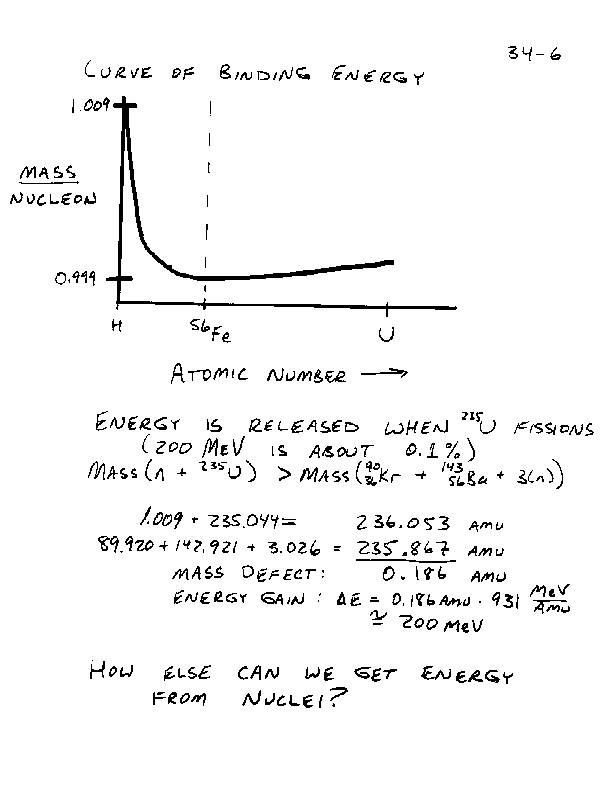 34-6
CURVE OF BINDING ENERGY
1.009
MASS
NUCLEON
0.999
H
56Fe
U
ATOMIC NUMBER →
ENERGY IS RELEASED WHEN ²³⁵U FISSIONS
(200 MeV IS ABOUT 0.1%)
MASS(n + ²³⁵U) > MASS(⁹⁰₃₆Kr + ¹⁴³₅₆Ba + 3(n))
1.009 + 235.044 = 236.053 AMU
89.920 + 142.921 + 3.026 = 235.867 AMU
MASS DEFECT: 0.186 AMU
ENERGY GAIN: ΔE = 0.186 AMU · 931 MeV/AMU
≃ 200 MeV
HOW ELSE CAN WE GET ENERGY
FROM NUCLEI?